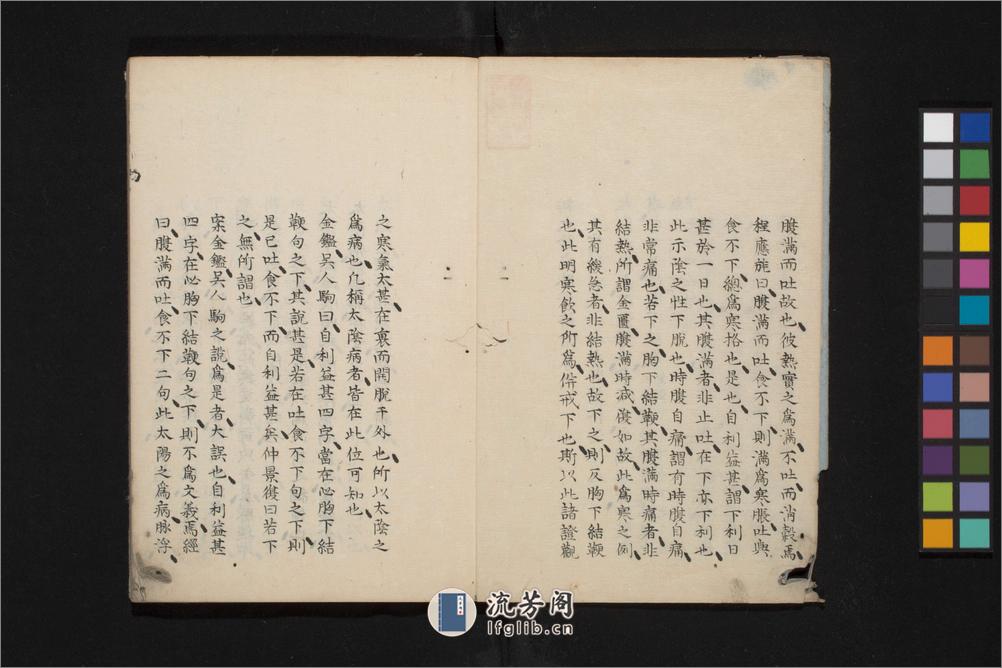 腹滿而吐故也彼熱實之爲滿不吐而消穀焉
程應旄曰腹滿而吐食不下則滿爲寒脹吐與
食不下總爲寒格也是也自利益甚謂下利日
甚於一日也其腹滿者非止吐在下亦下利也
此示陰之性下脫也時腹自痛謂有時腹自痛
非常痛也若下之胸下結鞕其腹滿時痛者非
結熱所謂金匱腹滿時減復如故此爲寒之例
其有緩急者非結熱也故下之則反胸下結鞕
也此明寒飲之所爲併戒下也斯以此諸證觀
之寒氣太甚在裏而開脫于外也所以太陰之
爲病也凡稱太陰病者皆在此位可知也
金鑑吳人駒曰自利益甚四字當在必胸下結
鞕句之下其說甚是若在吐食不下句之下則
是已吐食不下而自利益甚矣仲景復曰若下
之無所謂也
案金鑑吳人駒之說爲是者大誤也自利益甚
四字在必胸下結鞕句之下則不爲文義焉經
曰腹滿而吐食不下二句此太陽之爲病脈浮
流芳阁
lfglib.cn